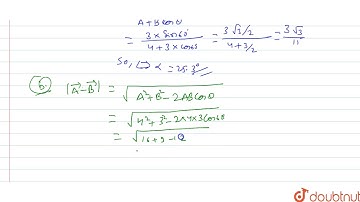 A+B cosθ
= 3 × Sin60° / 4+3×cos60 = 3√3/2 / 4+3/2 = 3√3 / 11
So, α = 25.3°
(b) |A⃗-B⃗| = √A²+B²-2ABcosθ
= √4²+3²-2×4×3cos60
= √16+9-12
doubtnut